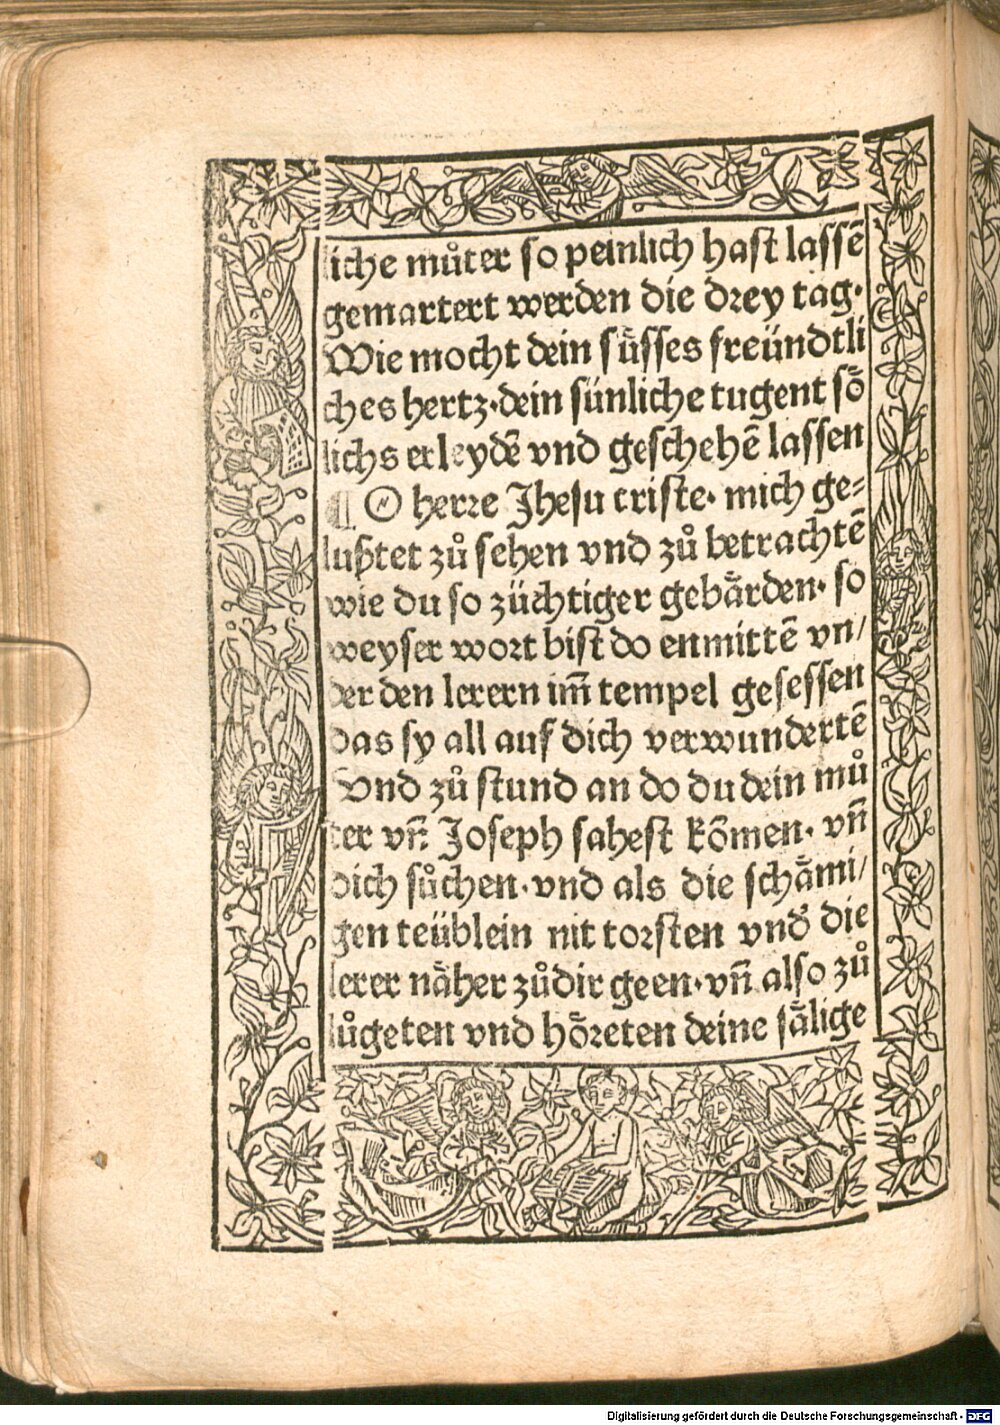 liche můter so peinlich hast lassē
gemartert werden die drey tag·
Wie mocht dein süsses freündtli
ches hertz·dein sünliche tugent sō
lichs erleydē vnd geschehē lassen
¶ O herre Jhesu criste· mich ge⸗
lußtet zů sehen vnd zů betrachtē
wie du so züchtiger gebärden· so
weyser wort bist do enmittē vn/
der den lerern im̄ tempel gesessen
das sy all auf dich verwundertē
Vnd zů stund an do du dein mů
ter vn̄ Joseph sahest kōmen· vn̄
dich sůchen·vnd als die schämi/
gen teüblein nit torsten vnd̓ die
lerer näher zůdir geen·vn̄ also zů
lůgeten vnd höreten deine sälige
Digitalisierung gefördert durch die Deutsche Forschungsgemeinschaft - DFG